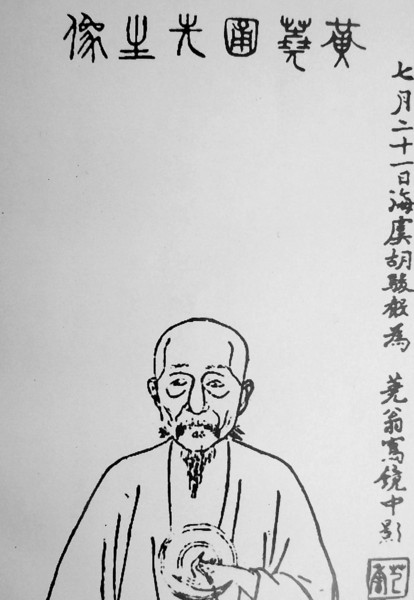 黃蕘圃先生像
七月二十一日海虞胡駿聲為 蕘翁寫鏡中影